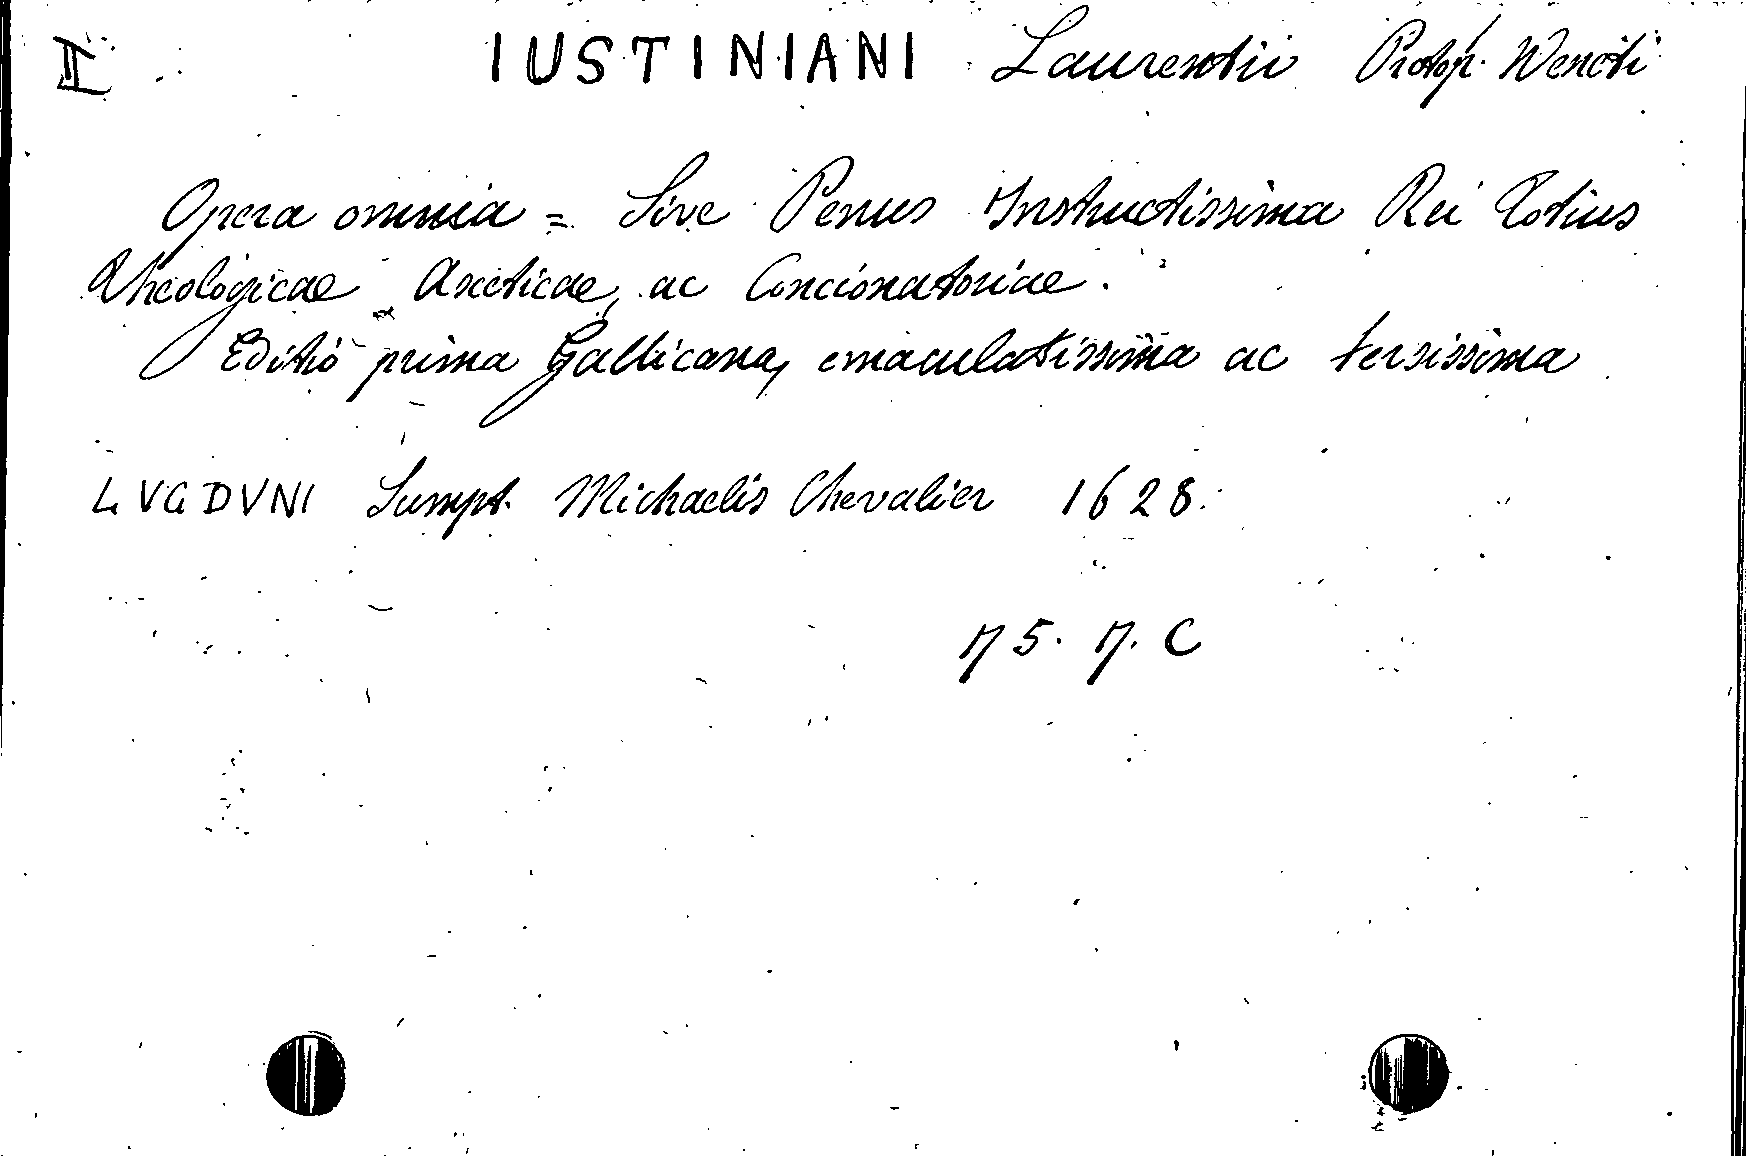 II IUSTINIANI Laurentii Protop. Veneti
Opera omnia = Sive Penus Instructissima Rei Totius
Theologicae Asceticae, ac Concionatoriae.
Editio prima Gallicana, emaculatissima ac tersissima
LVGDVNI Sumpt. Michaelis Chevalier 1628.
75. 7. C